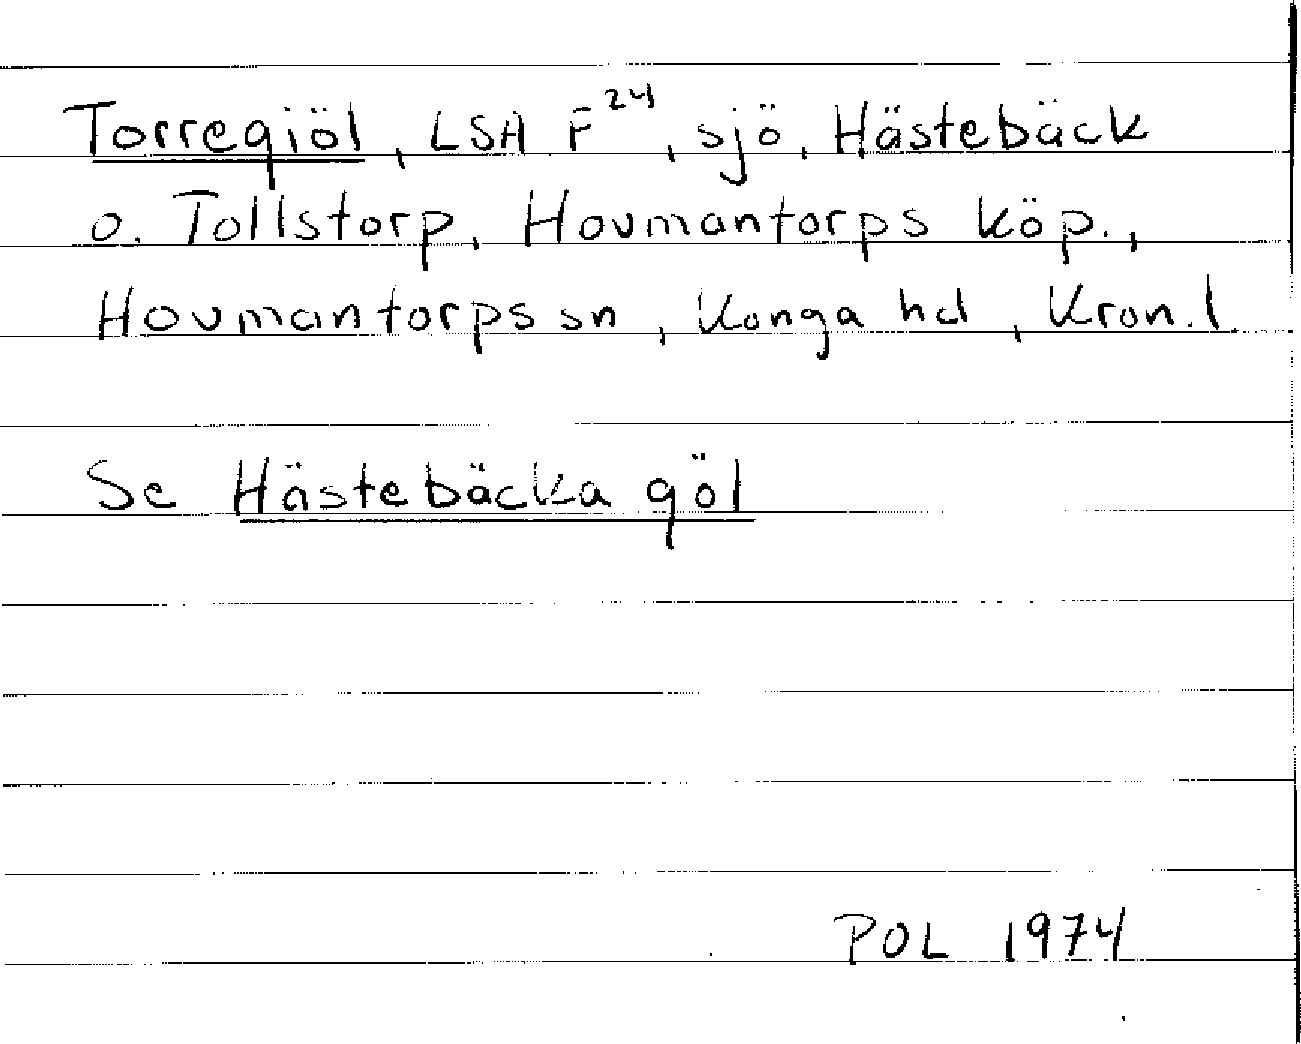 Torregiöl, LSA F 24, sjö, Hästebäck
o. Tollstorp, Hovmantorps köp.,
Hovmantorps sn, Konga hd, Kron. l.
Se Hästebäcka göl
POL 1974